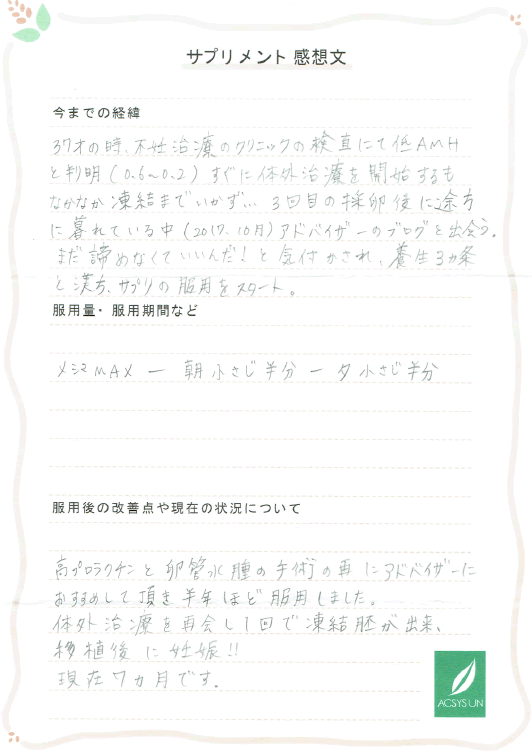 サプリメント 感想文
今までの経緯
37才の時、不妊治療のクリニックの検査にて低AMH
と判明（0.6〜0.2）すぐに体外治療を開始するも
なかなか凍結までいかず… 3回目の採卵後に途方
に暮れている中（2017.10月）アドバイザーのブログを出会う。
まだ諦めなくていいんだ！と気付かされ、養生3カ条
と漢方、サプリの服用をスタート。
服用量・服用期間など
メシマMAX ー 朝 小さじ半分 ー 夕 小さじ半分
服用後の改善点や現在の状況について
高プロラクチンと卵管水腫の手術の再にアドバイザーに
おすすめして頂き半年ほど服用しました。
体外治療を再会し1回で凍結胚が出来、
移植後に妊娠!!
現在7カ月です。
ACSYSUN